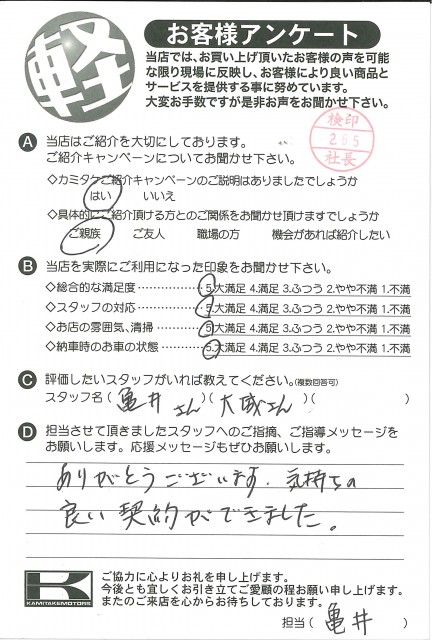 軽
お客様アンケート
当店では、お買い上げ頂いたお客様の声を可能
な限り現場に反映し、お客様により良い商品と
サービスを提供する事に努めています。
大変お手数ですが是非お声をお聞かせ下さい。
検印
2 6.5
社長
A 当店はご紹介を大切にしております。
ご紹介キャンペーンについてお聞かせ下さい。
◇カミタケご紹介キャンペーンのご説明はありましたでしょうか
はい いいえ
◇具体的にご紹介頂ける方とのご関係をお聞かせ頂けますでしょうか
ご親族 ご友人 職場の方 機会があれば紹介したい
B 当店を実際にご利用になった印象をお聞かせ下さい。
◇総合的な満足度 ……………… 5.大満足 4.満足 3.ふつう 2.やや不満 1.不満
◇スタッフの対応 ……………… 5.大満足 4.満足 3.ふつう 2.やや不満 1.不満
◇お店の雰囲気、清掃 ………… 5.大満足 4.満足 3.ふつう 2.やや不満 1.不満
◇納車時のお車の状態 ………… 5.大満足 4.満足 3.ふつう 2.やや不満 1.不満
C 評価したいスタッフがいれば教えてください。(複数回答可)
スタッフ名 ( 亀井さん )( 大城さん )( )
D 担当させて頂きましたスタッフへのご指摘、ご指導メッセージを
お願いします。応援メッセージもぜひお願いします。
ありがとうございます。気持ちの
良い契約ができました。
KAMITAKEMOTORS
ご協力に心よりお礼を申し上げます。
今後とも宜しくお引き立てご愛顧の程お願い申し上げます。
またのご来店を心からお待ちしております。
担当 ( 亀井 )